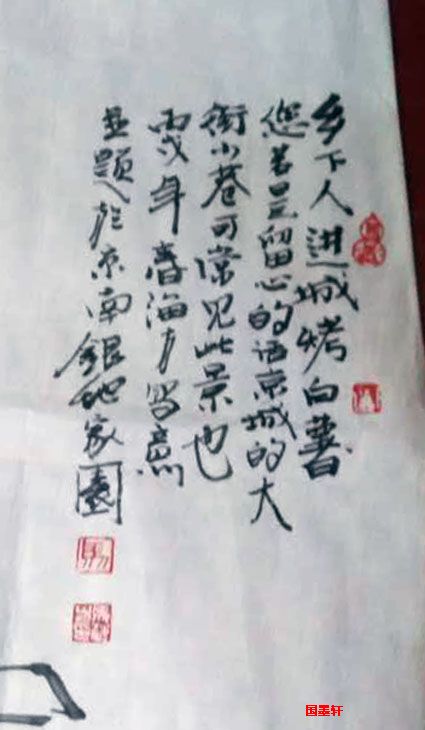 乡下人进城烤白薯
您若是留心的话京城的大
街小巷可常见此景也
丙戌年春海方写意
并题於京南银地家园
国墨轩